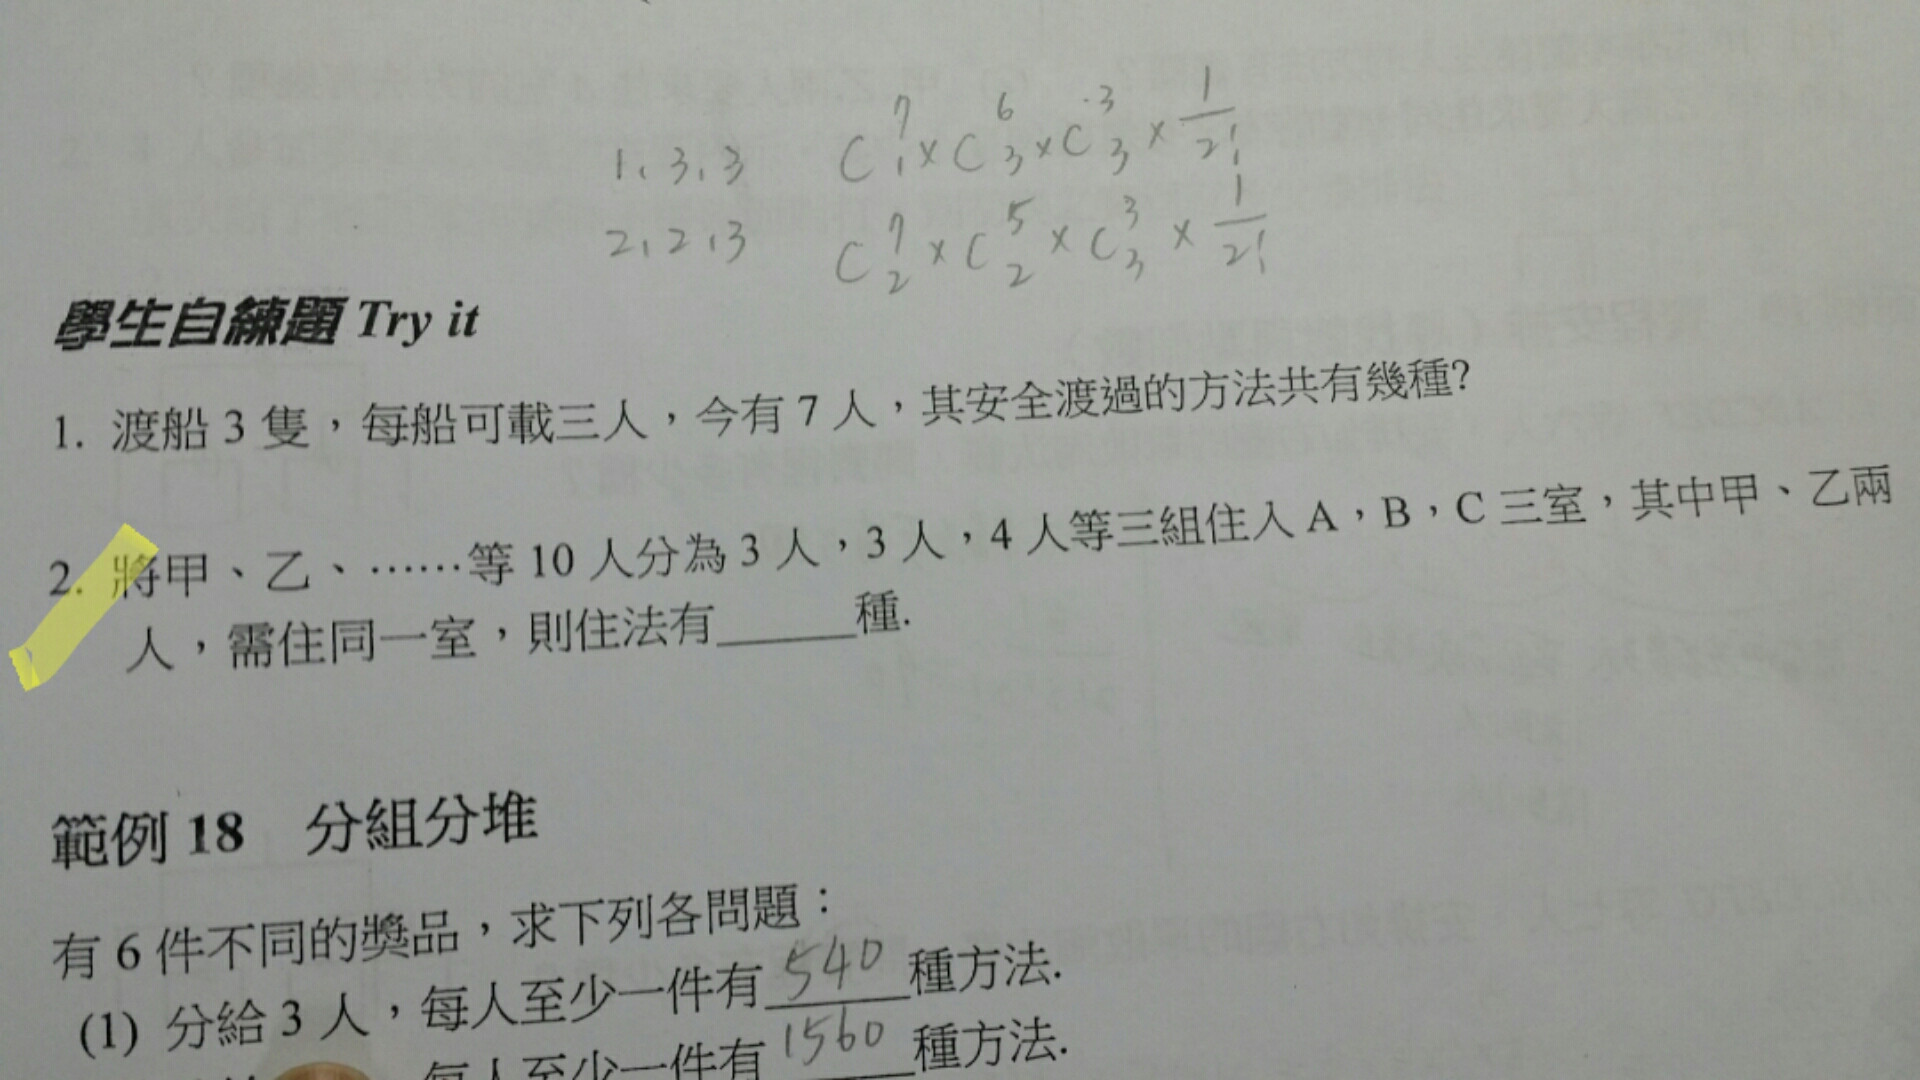 1, 3, 3 C⁷₁ × C⁶₃ × C³₃ × 1/2!
2, 2, 3 C⁷₂ × C⁵₂ × C³₃ × 1/2!
學生自練題 Try it
1. 渡船 3 隻，每船可載三人，今有 7 人，其安全渡過的方法共有幾種?
2. 將甲、乙、……等 10 人分為 3 人，3 人，4 人等三組住入 A，B，C 三室，其中甲、乙兩
人，需住同一室，則住法有______種.
範例 18 分組分堆
有 6 件不同的獎品，求下列各問題：
(1) 分給 3 人，每人至少一件有 540 種方法.
每人至少一件有 1560 種方法.